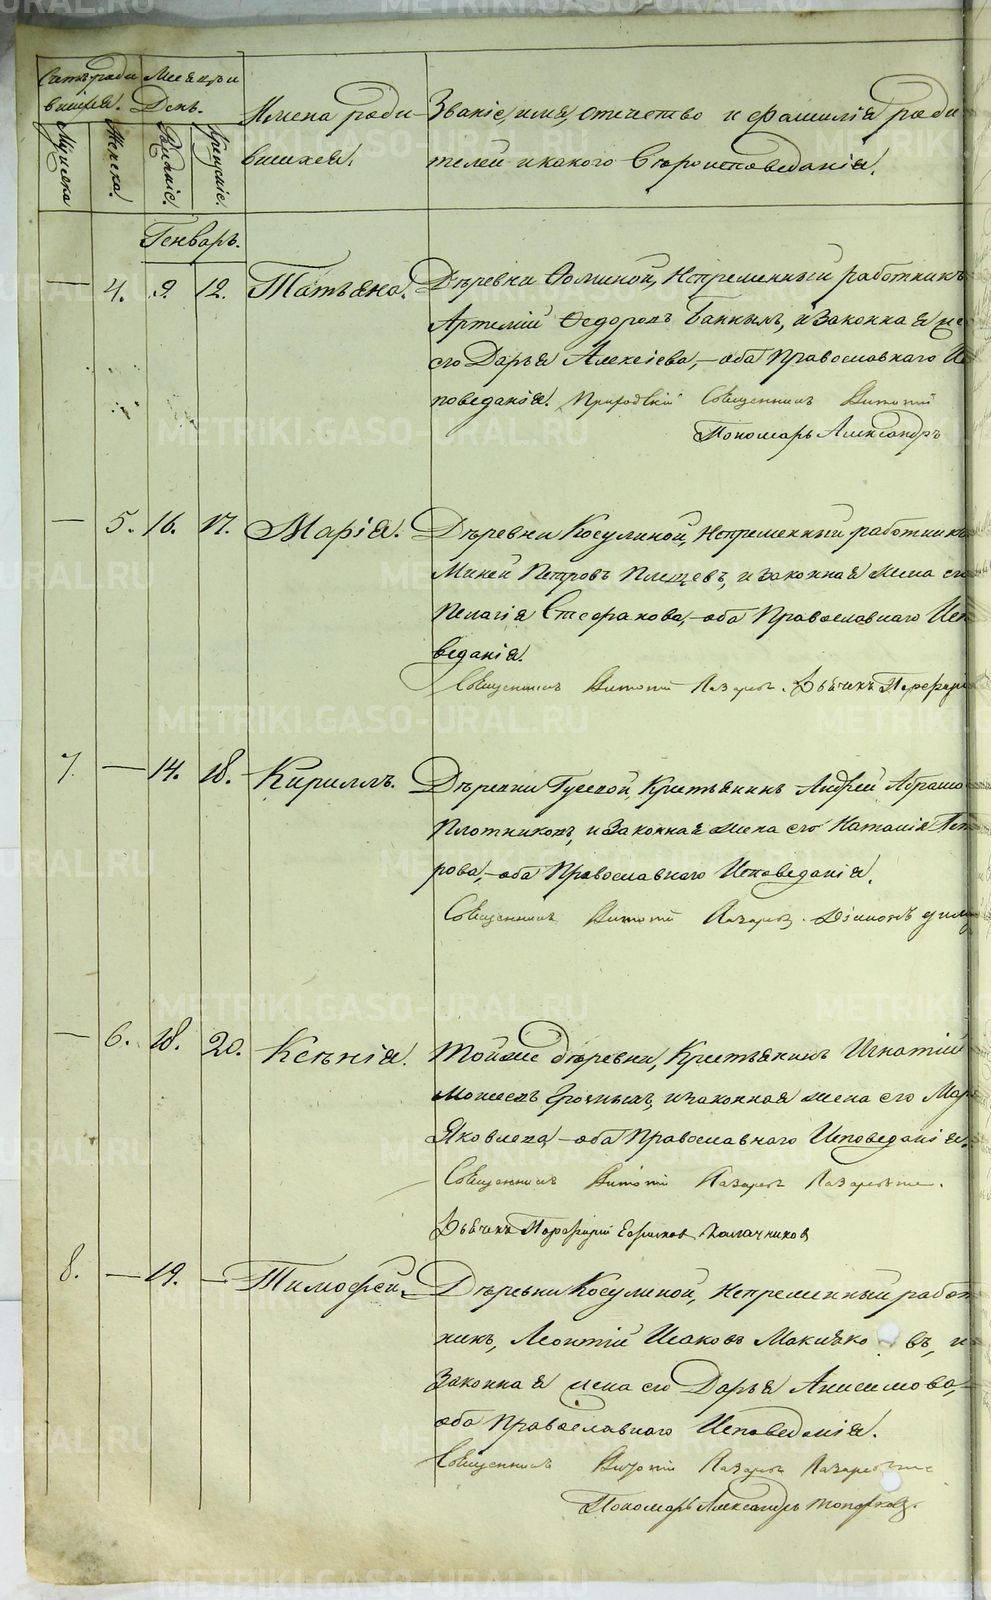 Счетъ роди Месяцъ и
вшихся. День.
Мужеска
Женска.
Рожденіе.
Крещеніе.
Имена роди-
вшихся.
Званіе, имя, отчество и фамилія роди
телей и какого вѣроисповеданія.
Генварь.
— 4. 9. 12. Татьяна. Дѣревни Фоминой, Непременный работникъ
Артемій Федоровъ Банныхъ, и законная же
его Дарья Алексіева, — оба Православнаго Ис
поведанія. Священникъ
Пономарь Александръ
— 5. 16. 17. Марія. Дѣревни Косулиной, Непременный работникъ
Миней Петровъ Плещевъ, и законная жена его
Пелагія Стефанова, — оба Православнаго Испо
веданія.
Священникъ Лазарев. Дьячекъ Порфирі
7. — 14. 18. Кириллъ. Дѣревни Гусевой, Крестьянинъ Андрей Абрамо
Плотниковъ, и законная жена его Наталія Пет
рова, — оба Православнаго Исповеданія.
Священникъ Лазарев. Діаконъ
— 6. 18. 20. Ксѣнія. Тойже дѣревни, Крестьянинъ Игнатій
Моисеевъ и законная жена его Мар
Яковлева — оба Православнаго Исповеданія.
Священникъ Лазарев
Дьячекъ Порфирій Ефимов Калачников
8. — 19. — Тимофей. Дѣревни Косулиной, Непременный работ
никъ, Леонтій Исаковъ въ, и
Законная жена его Дарья Анисимова, —
оба Православнаго Исповеданія.
Священникъ Лазарев
Пономарь Александръ Топорков.
METRIKI.GASO-URAL.RU